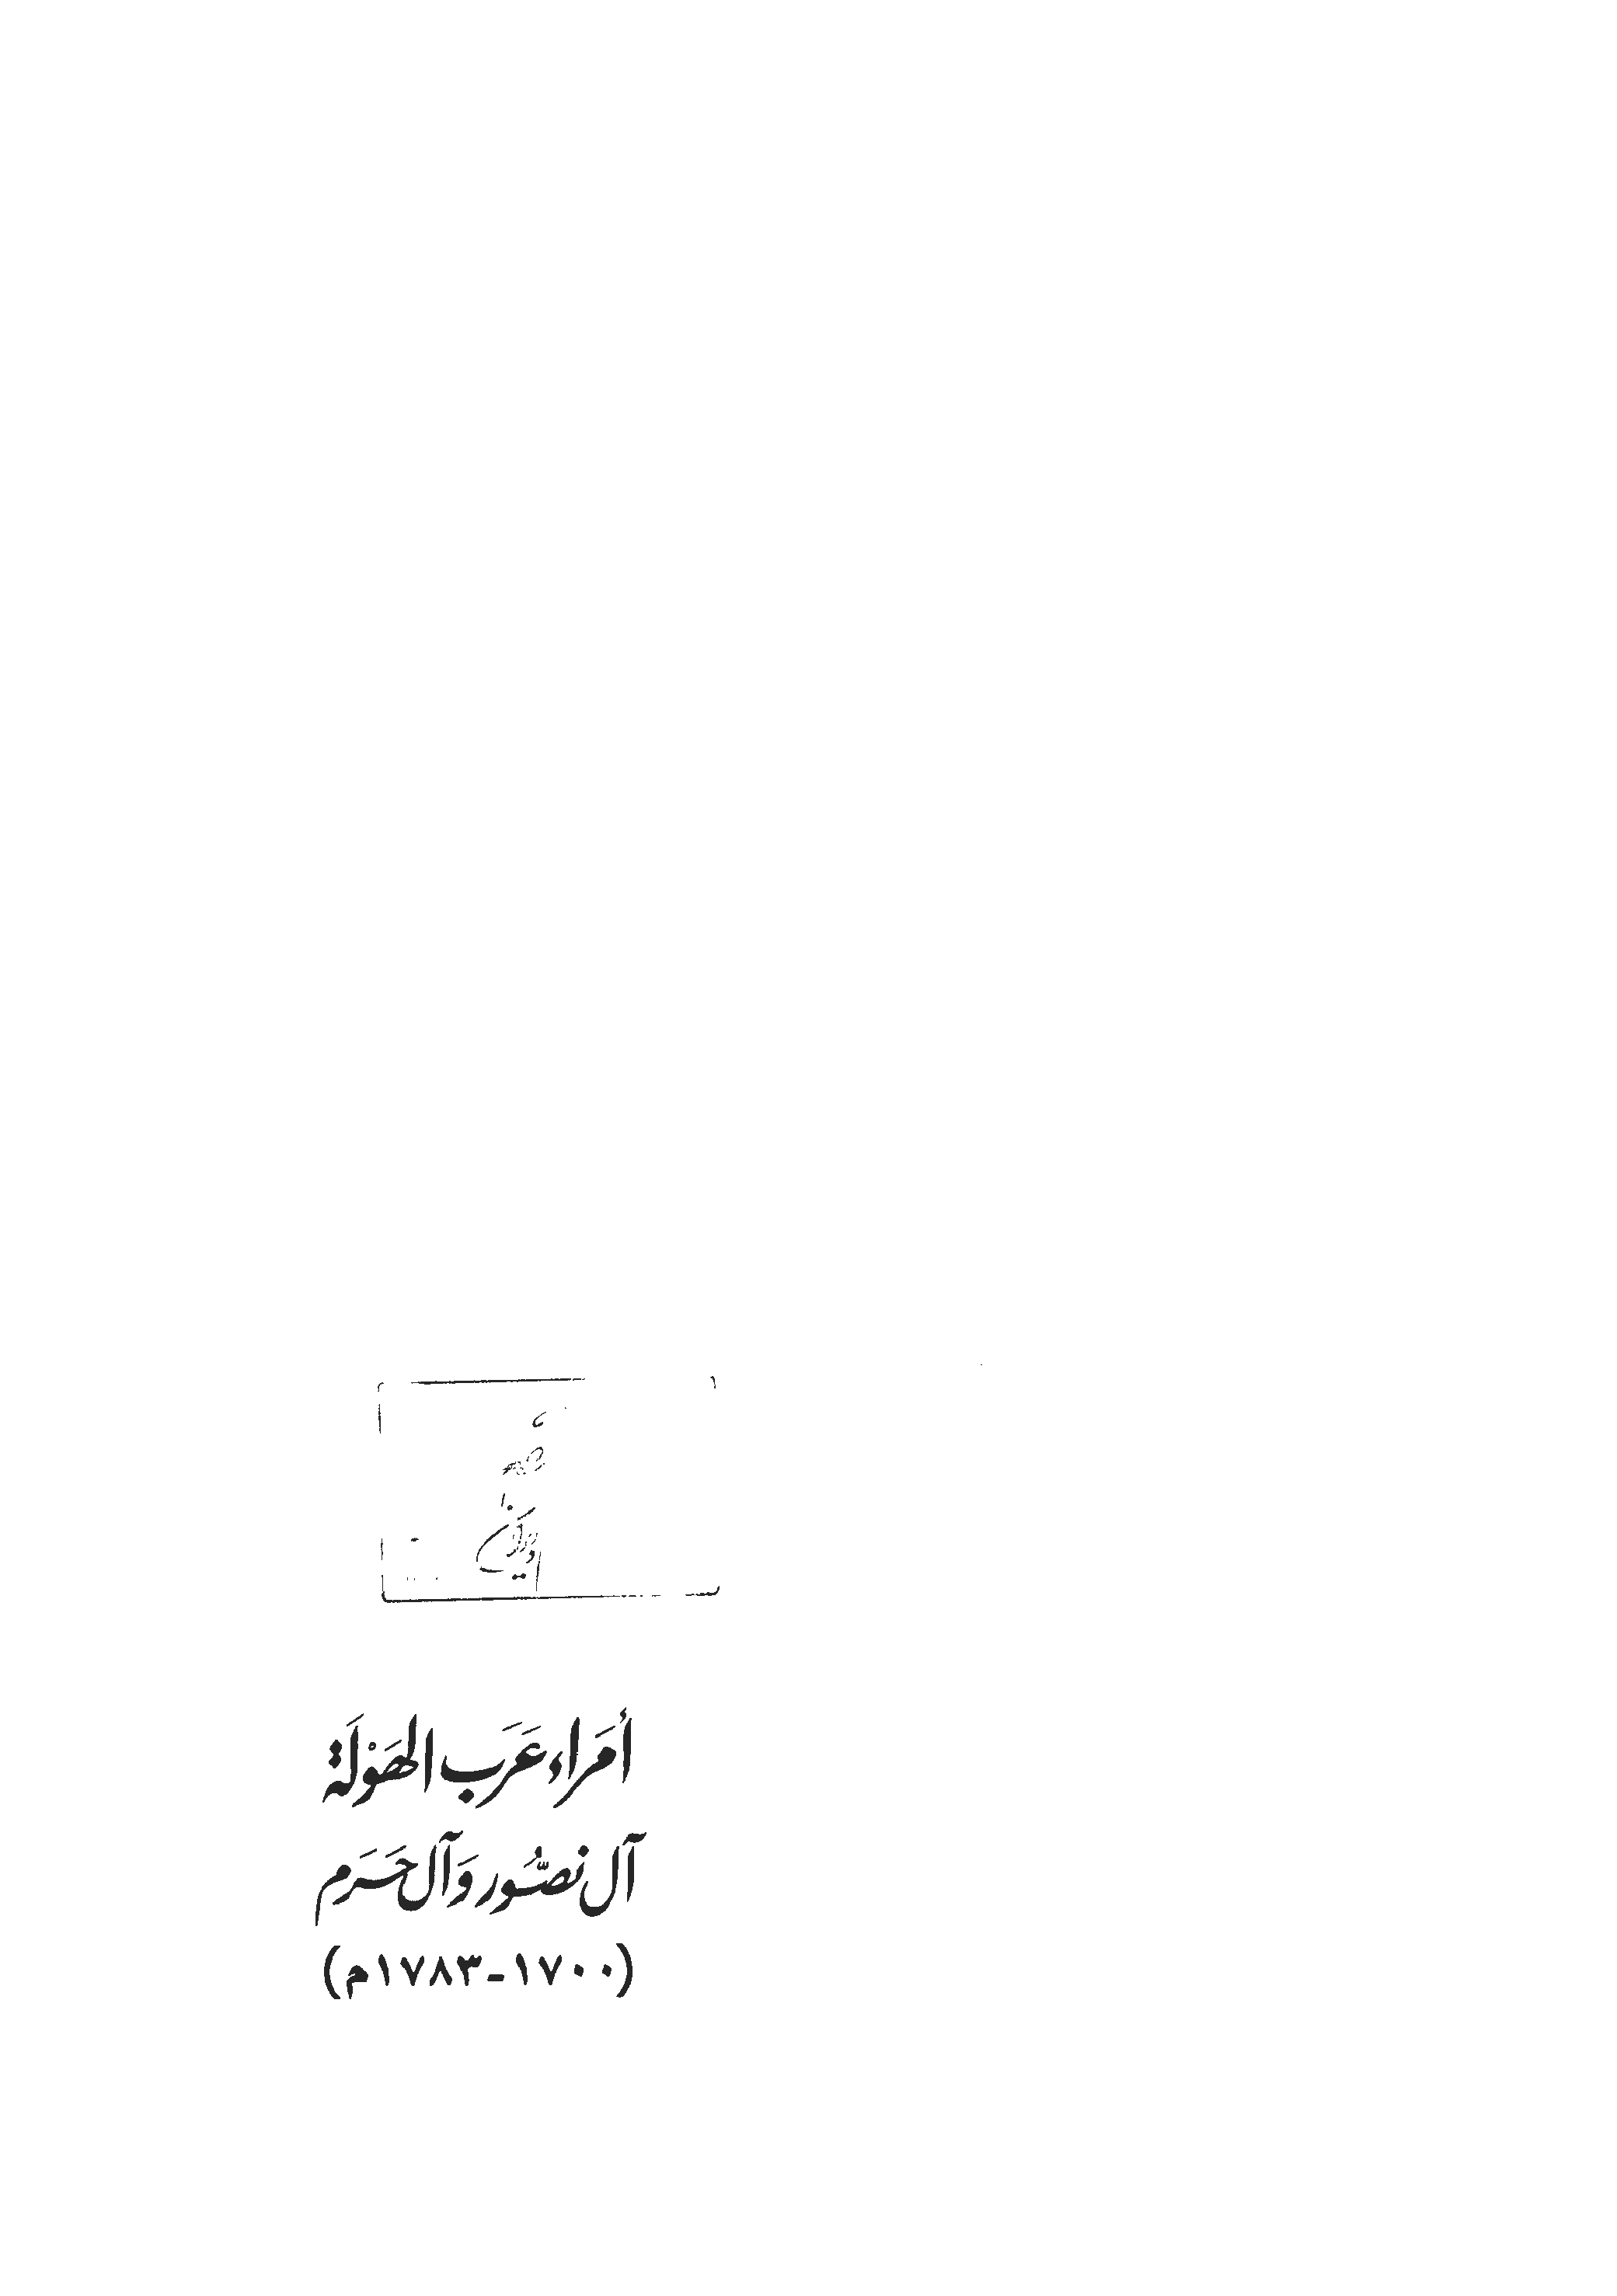 أُمَرَاء عَرَب الهَوْلَة
آل نصُّور وَآل حَرَم
(١٧٠٠-١٧٨٣م)